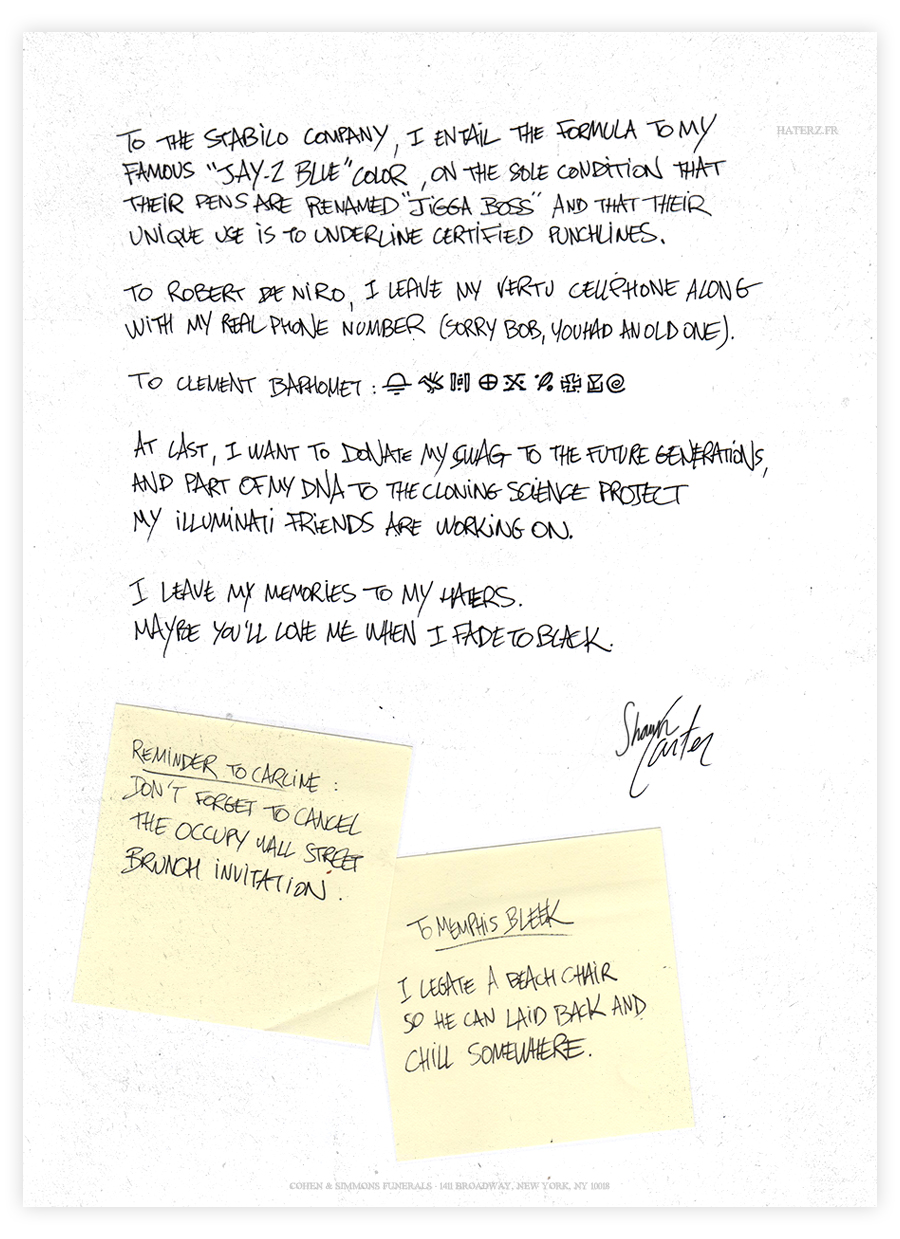 HATERZ.FR
TO THE STABILO COMPANY, I ENTAIL THE FORMULA TO MY
FAMOUS "JAY-Z BLUE" COLOR, ON THE SOLE CONDITION THAT
THEIR PENS ARE RENAMED "JIGGA BOSS" AND THAT THEIR
UNIQUE USE IS TO UNDERLINE CERTIFIED PUNCHLINES.
TO ROBERT DE NIRO, I LEAVE MY VERTU CELLPHONE ALONG
WITH MY REAL PHONE NUMBER (SORRY BOB, YOU HAD AN OLD ONE).
TO CLEMENT BAPHOMET :
AT LAST, I WANT TO DONATE MY SWAG TO THE FUTURE GENERATIONS,
AND PART OF MY DNA TO THE CLONING SCIENCE PROJECT
MY ILLUMINATI FRIENDS ARE WORKING ON.
I LEAVE MY MEMORIES TO MY HATERS.
MAYBE YOU'LL LOVE ME WHEN I FADE TO BLACK.
Shawn
Carter
REMINDER TO CARLINE :
DON'T FORGET TO CANCEL
THE OCCUPY WALL STREET
BRUNCH INVITATION.
TO MEMPHIS BLEEK
I LEGATE A BEACH CHAIR
SO HE CAN LAID BACK AND
CHILL SOMEWHERE.
COHEN & SIMMONS FUNERALS · 1411 BROADWAY, NEW YORK, NY 10018